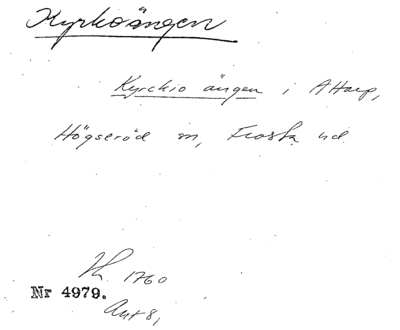 Kyrkoängen
Kyrckio ängen i Attarp,
Högseröd sn, Frosta hd.
1760
Nr 4979.
Akt 8,